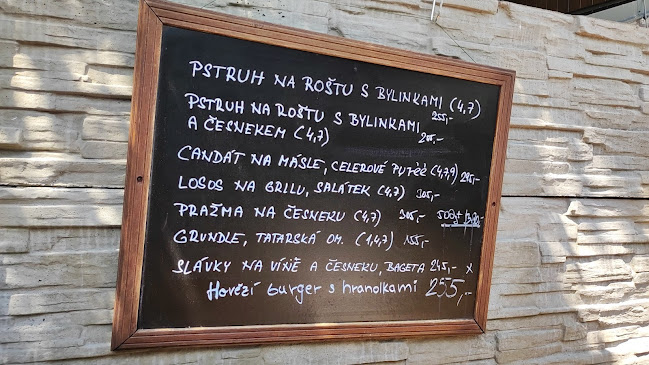 PSTRUH NA ROŠTU S BYLINKAMI (4,7) 255,-
PSTRUH NA ROŠTU S BYLINKAMI
A ČESNEKEM (4,7)
CANDÁT NA MÁSLE, CELEROVÉ PYRÉ (4,7,9) 295,-
LOSOS NA GRILU, SALÁTEK (4,7) 305,-
PRAŽMA NA ČESNEKU (4,7) 305,-
GRUNDLE, TATARSKÁ OM. (1,4,7) 155,-
SLÁVKY NA VÍNĚ A ČESNEKU, BAGETA 245,- x
Hovězí burger s hranolkami 255,-